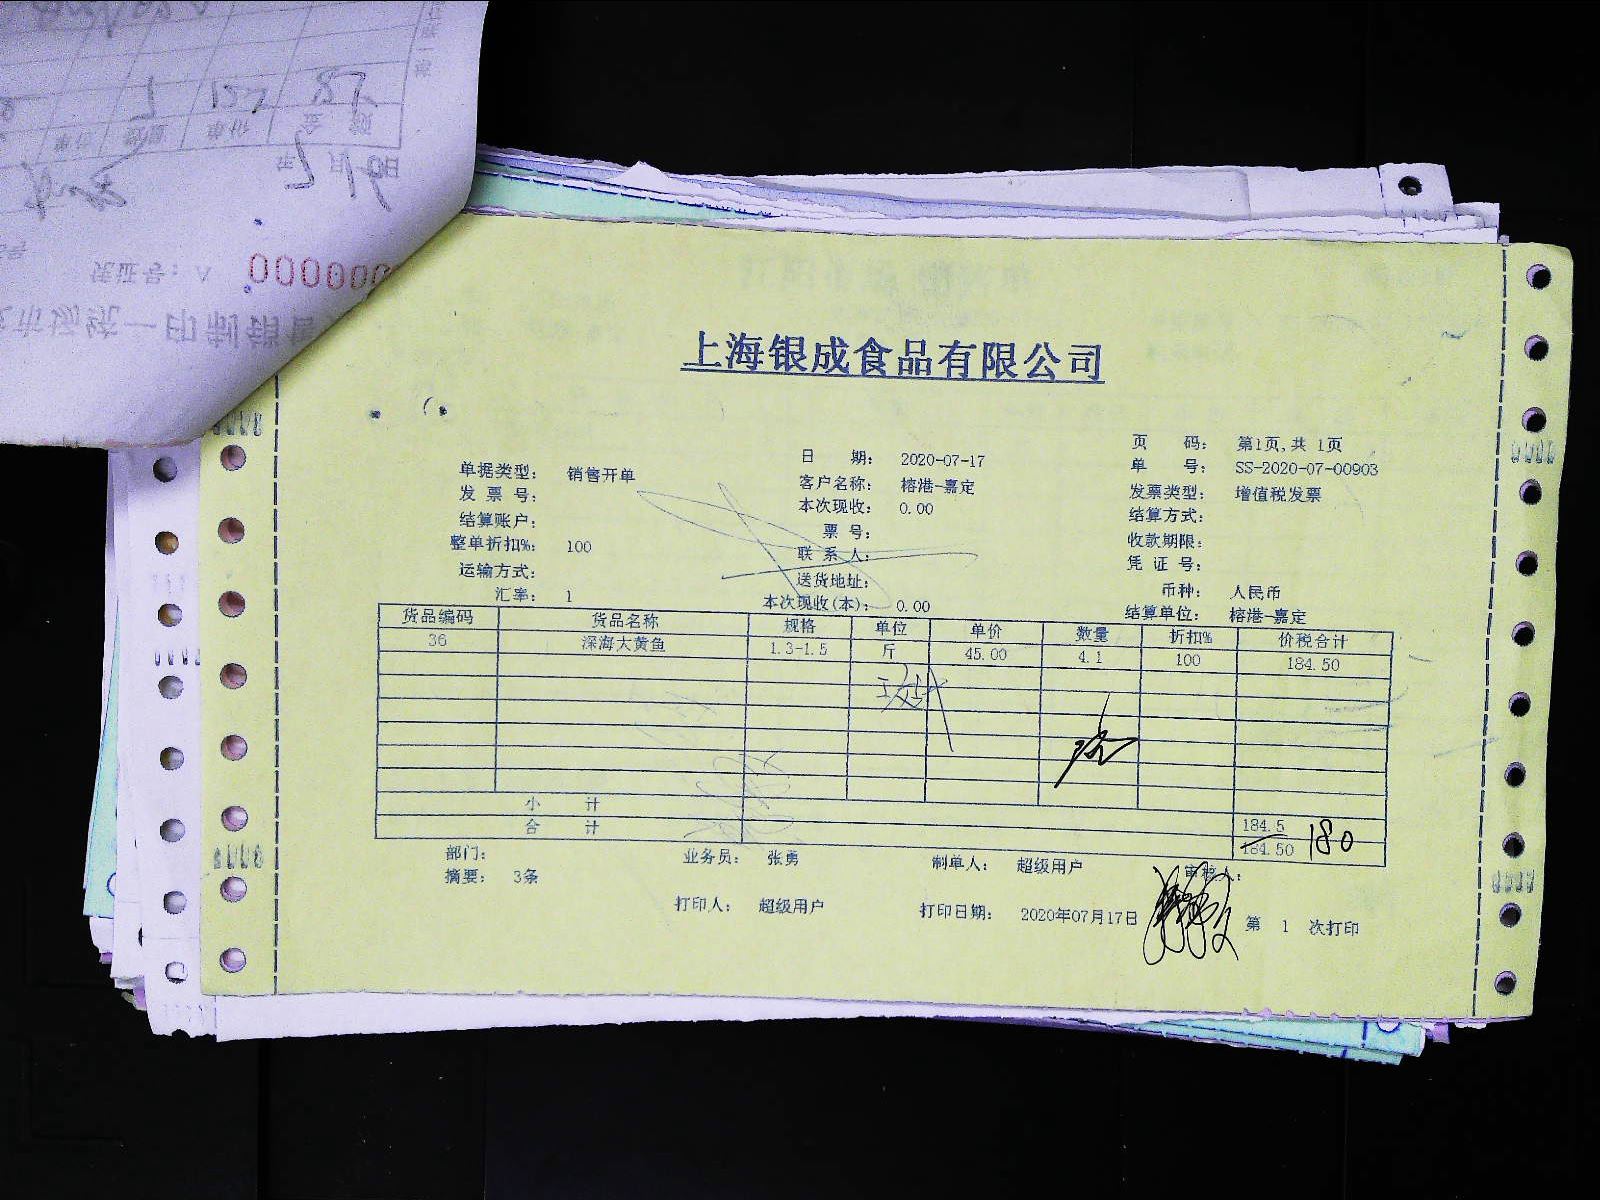 上海银成食品有限公司
单据类型： 销售开单 日 期： 2020-07-17 页 码： 第1页,共 1页
发 票 号： 客户名称： 榕港-嘉定 单 号： SS-2020-07-00903
结算账户： 本次现收： 0.00 发票类型： 增值税发票
整单折扣%： 100 票 号： 结算方式：
运输方式： 联 系 人： 收款期限：
汇率： 1 送货地址： 凭 证 号：
本次现收(本)： 0.00 币种： 人民币
结算单位： 榕港-嘉定
货品编码 货品名称 规格 单位 单价 数量 折扣% 价税合计
36 深海大黄鱼 1.3-1.5 斤 45.00 4.1 100 184.50
小 计 184.5
合 计 184.50 180
部门： 业务员： 张勇 制单人： 超级用户 审核人：
摘要： 3条
打印人： 超级用户 打印日期： 2020年07月17日 第 1 次打印